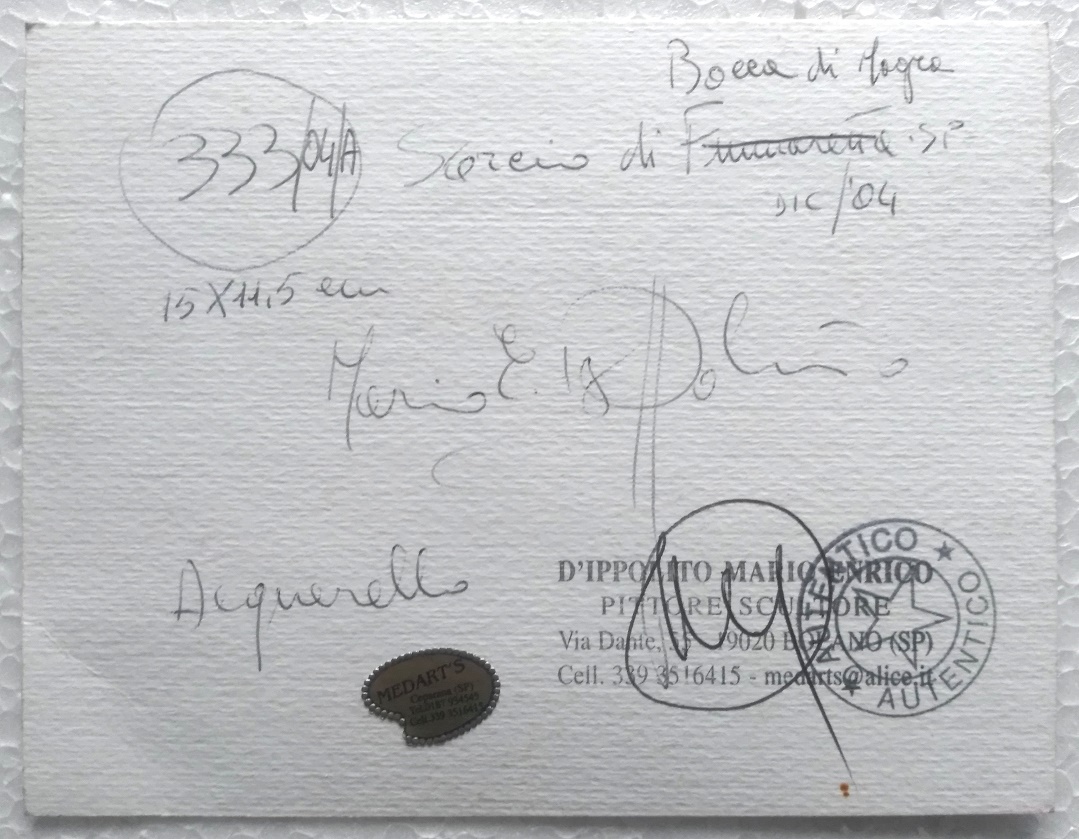 Bocca di Magra
333/04/A Scorcio di Fiumaretta - SP-
DIC/'04
15X11,5 cm
Mario E. D'Ippolito
Acquerello
D'IPPOLITO MARIO ENRICO
PITTORE SCULTORE
Via Dante, 19020 BOLANO (SP)
Cell. 339 3516415 - medarts@alice.it
AUTENTICO ★ AUTENTICO ★
MEDART'S
(SP)
Cell. 339 3516415